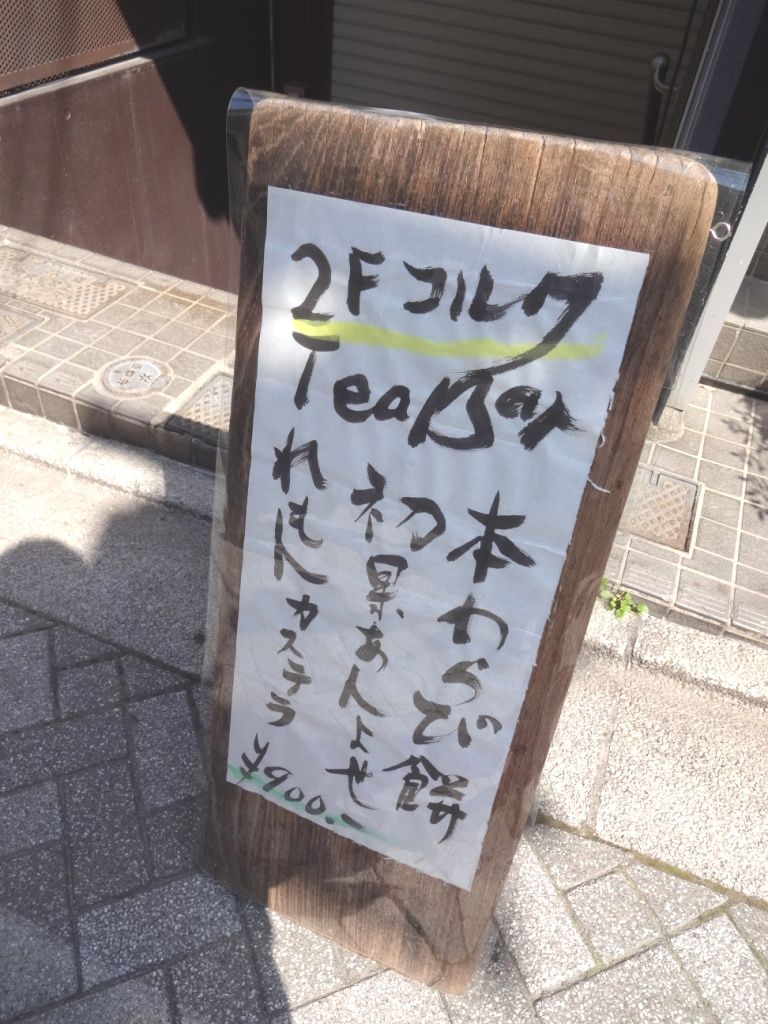 2Fコルク
Tea Bar
本わらび餅
初夏あんよせ
れもんカステラ
¥900.-